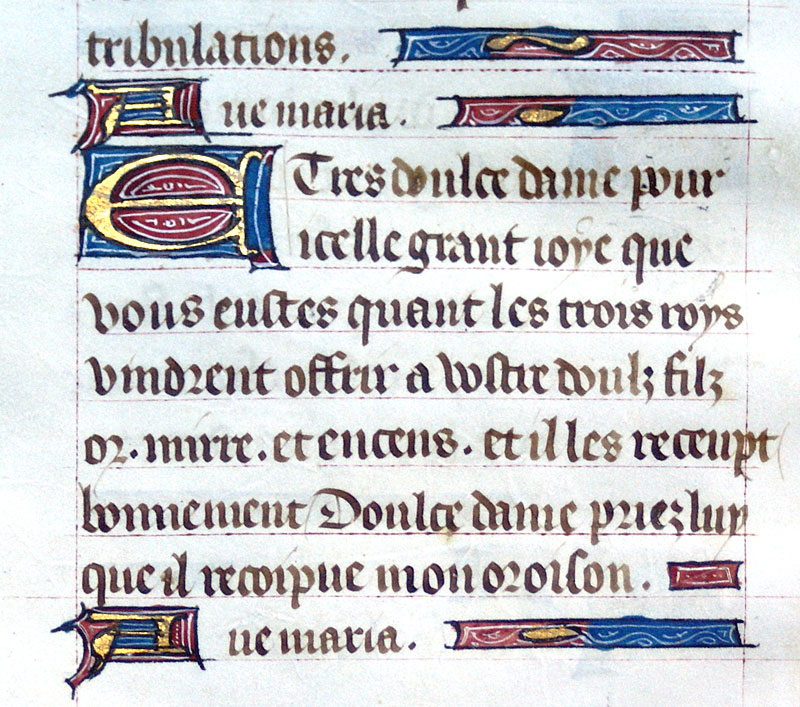 tribulations.
Aue maria.
E Tres doulce dame pour
icelle grant ioye que
vous eustes quant les trois roys
vindrent offrir a vostre doulz filz
or. mirre. et encens. et il les receupt
bonnement Doulce dame priez luy
que il recoipue mon oroison.
Aue maria.